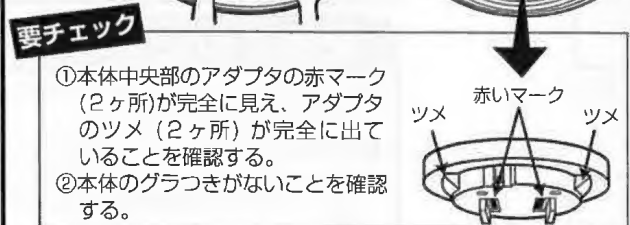 要チェック
①本体中央部のアダプタの赤マーク
(2ヶ所)が完全に見え、アダプタ
のツメ(2ヶ所)が完全に出て
いることを確認する。
②本体のグラつきがないことを確認
する。
赤いマーク
ツメ
ツメ